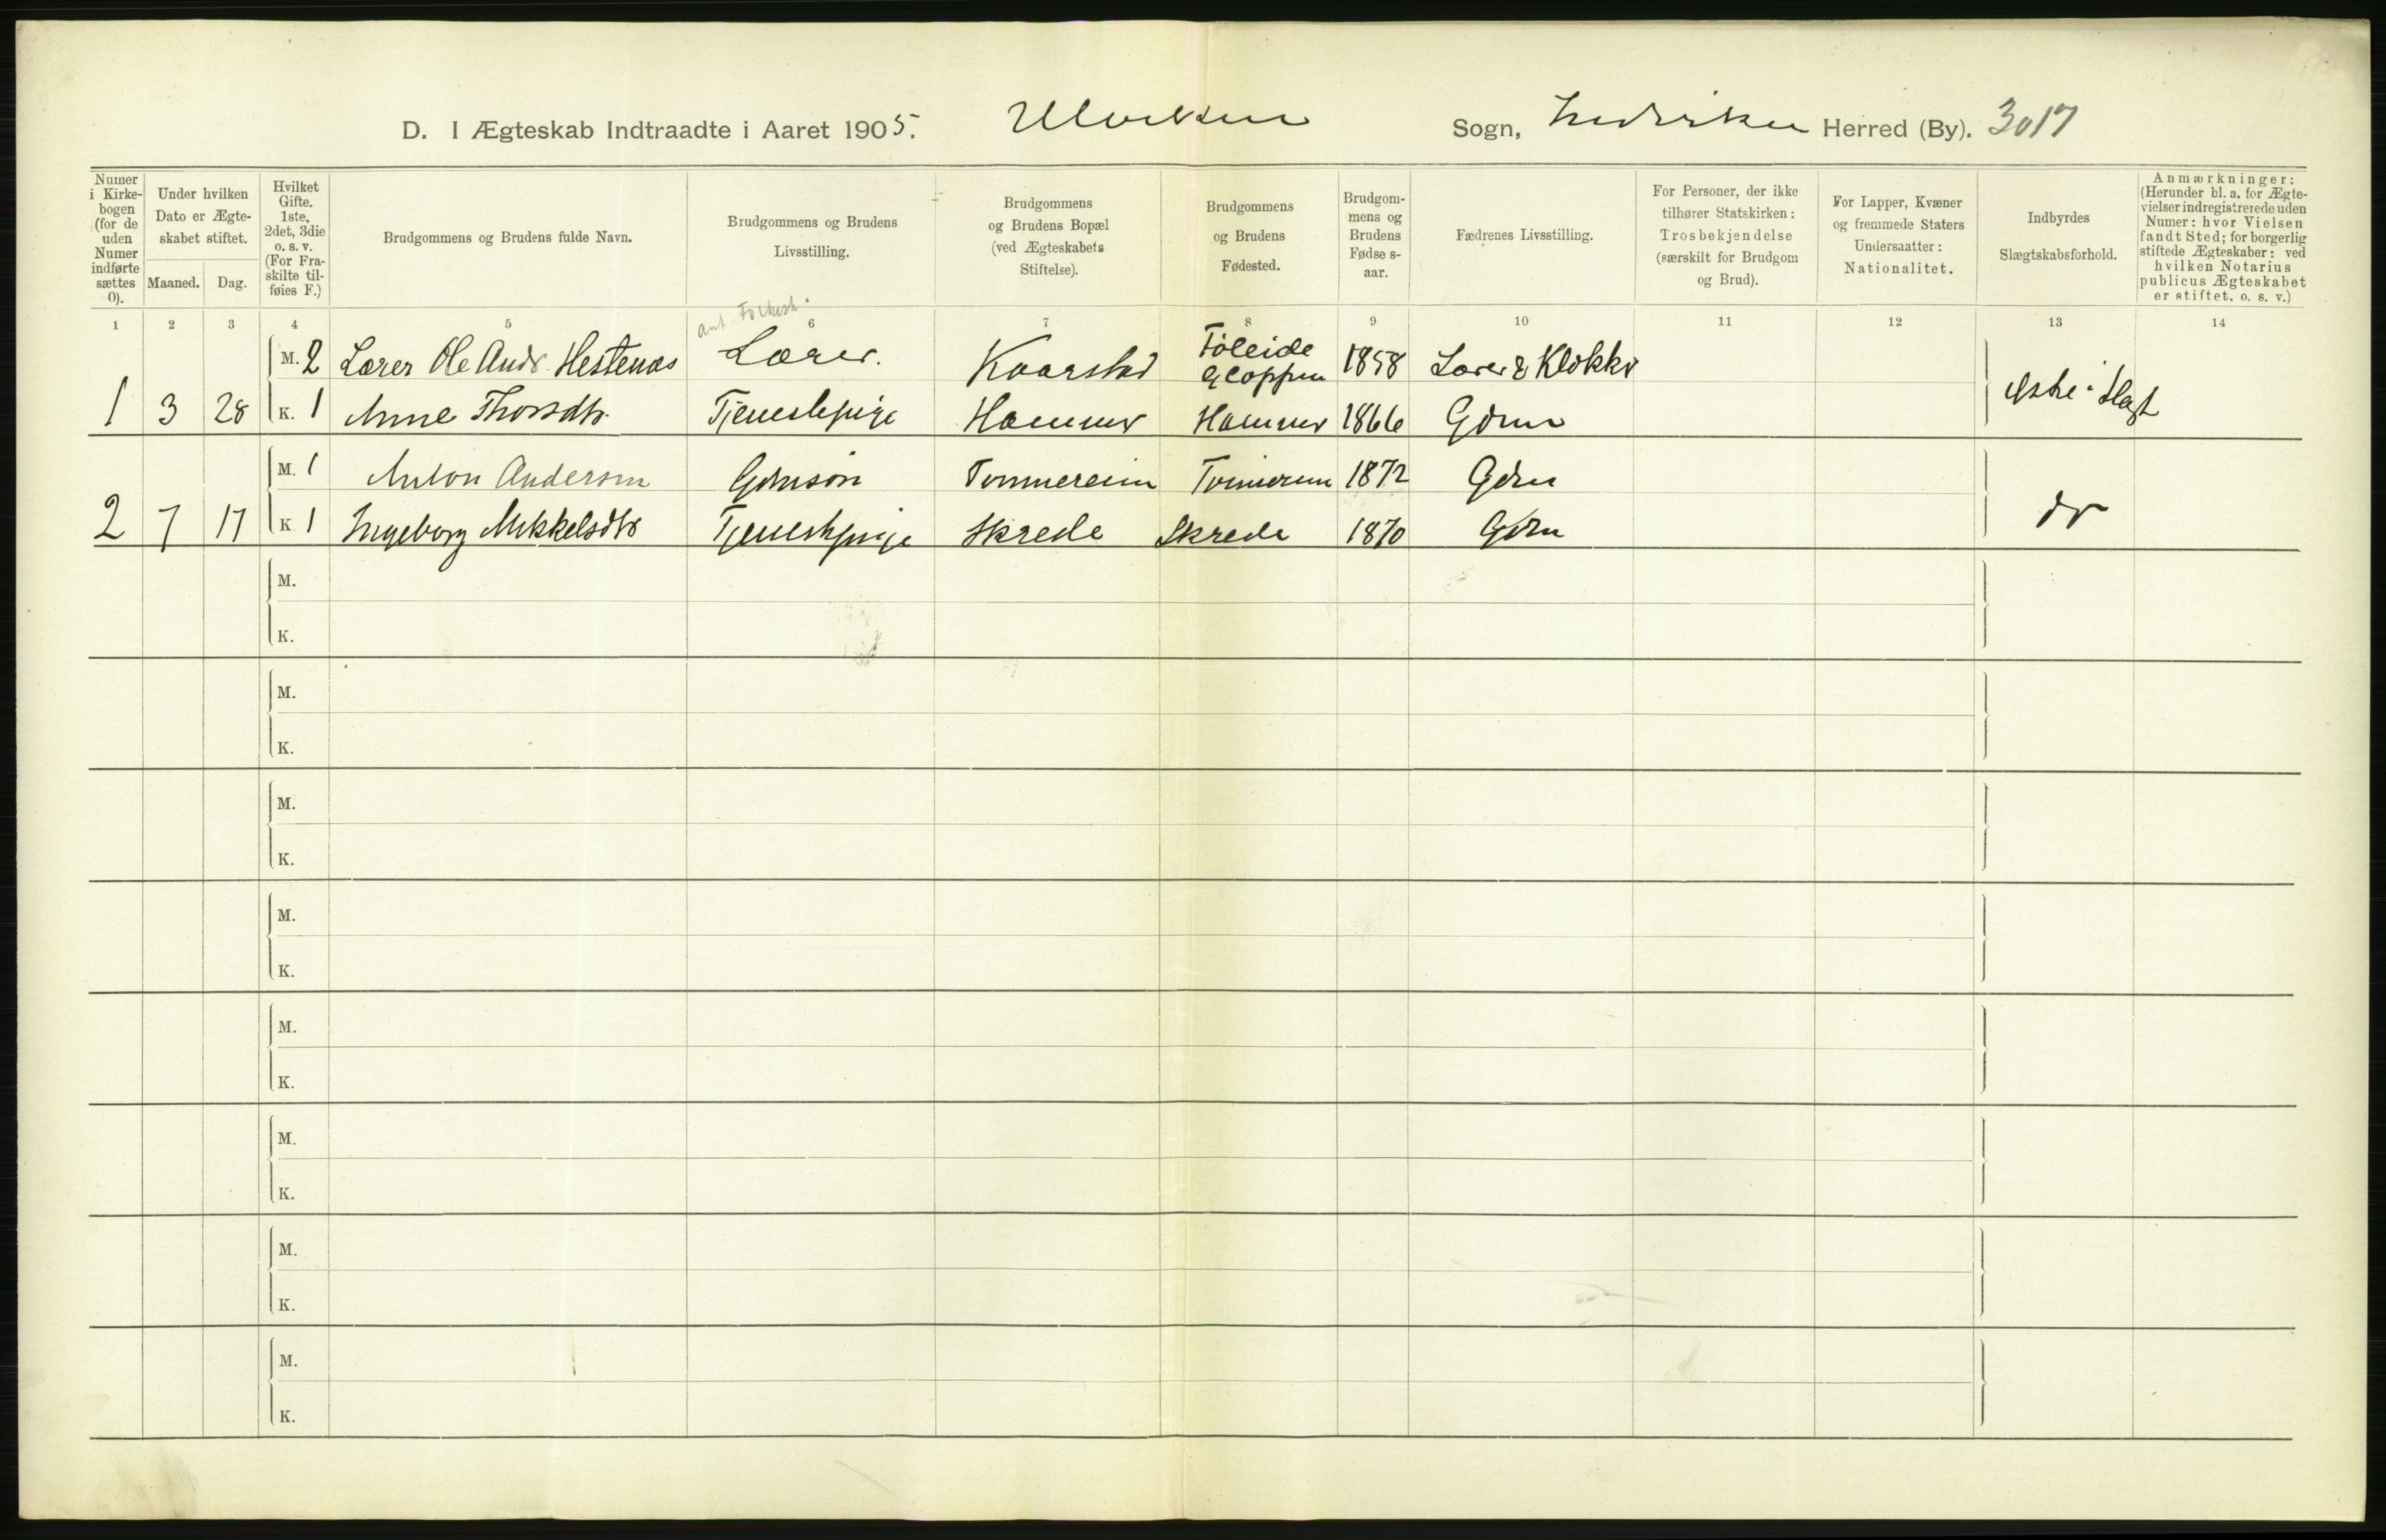 D. I Ægteskab Indtraadte i Aaret 1905. Utviken Sogn, Indviken Herred (By). 3017
Numer i Kirkebogen (for de uden Numer indførte sættes 0).
Under hvilken Dato er Ægteskabet stiftet.
Maaned. Dag.
Hvilket Gifte. 1ste, 2det, 3die o. s. v. (For Fraskilte tilføies F.)
Brudgommens og Brudens fulde Navn.
Brudgommens og Brudens Livsstilling.
Brudgommens og Brudens Bopæl (ved Ægteskabets Stiftelse).
Brudgommens og Brudens Fødested.
Brudgommens og Brudens Fødselsaar.
Fædrenes Livsstilling.
For Personer, der ikke tilhører Statskirken: Trosbekjendelse (særskilt for Brudgom og Brud).
For Lapper, Kvæner og fremmede Staters Undersaatter: Nationalitet.
Indbyrdes Slægtskabsforhold.
Anmærkninger: (Herunder bl. a. for Ægtevielser indregistrerede uden Numer: hvor Vielsen fandt Sted; for borgerlig stiftede Ægteskaber: ved hvilken Notarius publicus Ægteskabet er stiftet. o. s. v.)
1 2 3 4 5 6 7 8 9 10 11 12 13 14
ant. Folkesk.
M. 2 Lærer Ole Andr. Hestenæs Lærer. Kaarstad Föleide Gloppen 1858 Lærer & Klokker
1 3 28 K. 1 Anne Thorsdtr. Tjenestepige Hammer Hammer 1866 Gdm ikke i Slægt
M. 1 Anton Anderson Gdmsøn Tvinnereim Tvinnereim 1872 Gdm
2 7 17 K. 1 Ingeborg Mikkelsdtr Tjenestepige Skrede Skrede 1870 Gdm do
M.
K.
M.
K.
M.
K.
M.
K.
M.
K.
M.
K.
M.
K.
M.
K.